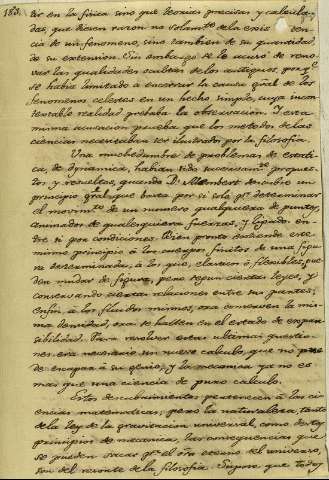 183.
en la fisica sino que teorias precisas y calcula-
das, que diesen razon no solam.te de la exis-tencia
de un fenomeno, sino tambien de su quantidad
de su extension. Sin embargo se le acusó de reno-
var las qualidades ocultas de los antiguos, porq.e
se habia limitado á encerrar la causa gral de los
fenomenos celestes en un hecho simple, cuya incon-
testable realidad probaba la observacion. Y esta
misma acusacion prueba que los metodos de las
ciencias necesitaban ser ilustrados por la filosofia.
Una muchedumbre de problemas de estati-
ca, de dynamica, habian sido sucesivam.te propues-
tos y resueltos, quando D'Alembert descubrió un
principio gral que basta por si solo p.a determinar
el movim.to de un numero qualquiera de puntos,
animados de qualesquiera fuerzas, y ligados en-
tre si por condiciones. Bien pronto extendió este
mismo principio á los cuerpos finitos de una figu-
ra determinada, á los que, elasticos ó flexibles, pue-
den mudar de figura, pero segun ciertas leyes, y
conservando ciertas relaciones entre sus partes;
enfin, á los fluidos mismos, ora conserven la mis-
ma densidad, ora se hallen en el estado de expan-
sibilidad. Para resolver estas ultimas questio-
nes era necesario un nuevo calculo, que no pu-
do escapar á su genio, y la mecanica ya no es
mas que una ciencia de puro calculo.
Estos descubrimientos pertenecen á las ci-
encias matematicas; pero la naturaleza, tanto
de la ley de la gravitacion universal, como de estos
principios de mecanica, las consequencias que
se pueden sacar p.a el orden eterno del universo,
son del resorte de la filosofia. Supose que todos